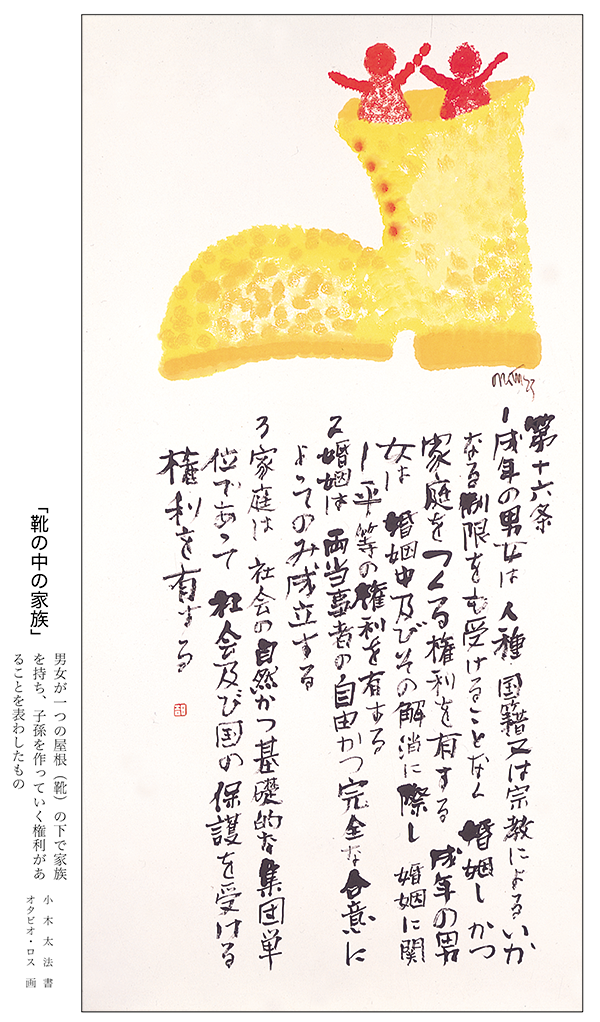 第十六条
1成年の男女は 人種 国籍又は宗教によるいか
なる制限をも受けることなく 婚姻し かつ
家庭をつくる権利を有する 成年の男
女は 婚姻中及びその解消に際し 婚姻に関
し平等の権利を有する
2婚姻は 両当事者の自由かつ完全な合意に
よってのみ成立する
3家庭は 社会の自然かつ基礎的な集団単
位であって 社会及び国の保護を受ける
権利を有する
「靴の中の家族」
男女が一つの屋根（靴）の下で家族
を持ち、子孫を作っていく権利があ
ることを表わしたもの
小木太法 書
オクビオ・ロス 画